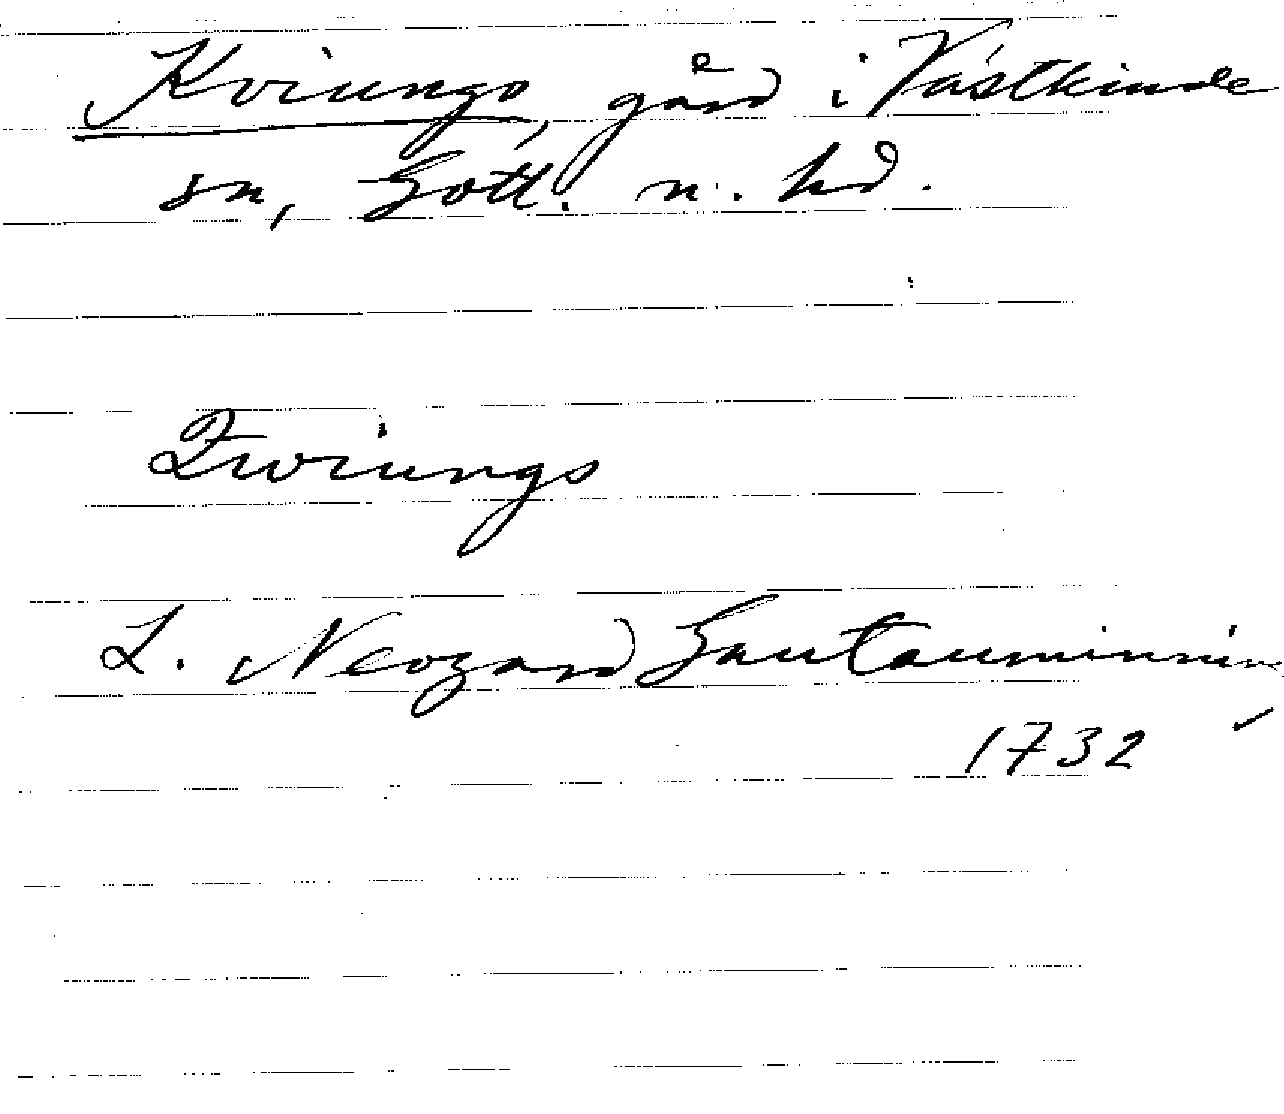 Kviungs, gård i Västkinde
sn, Gotl. n. hd.
Qwiungs
L. Neogard Gautauminning
1732